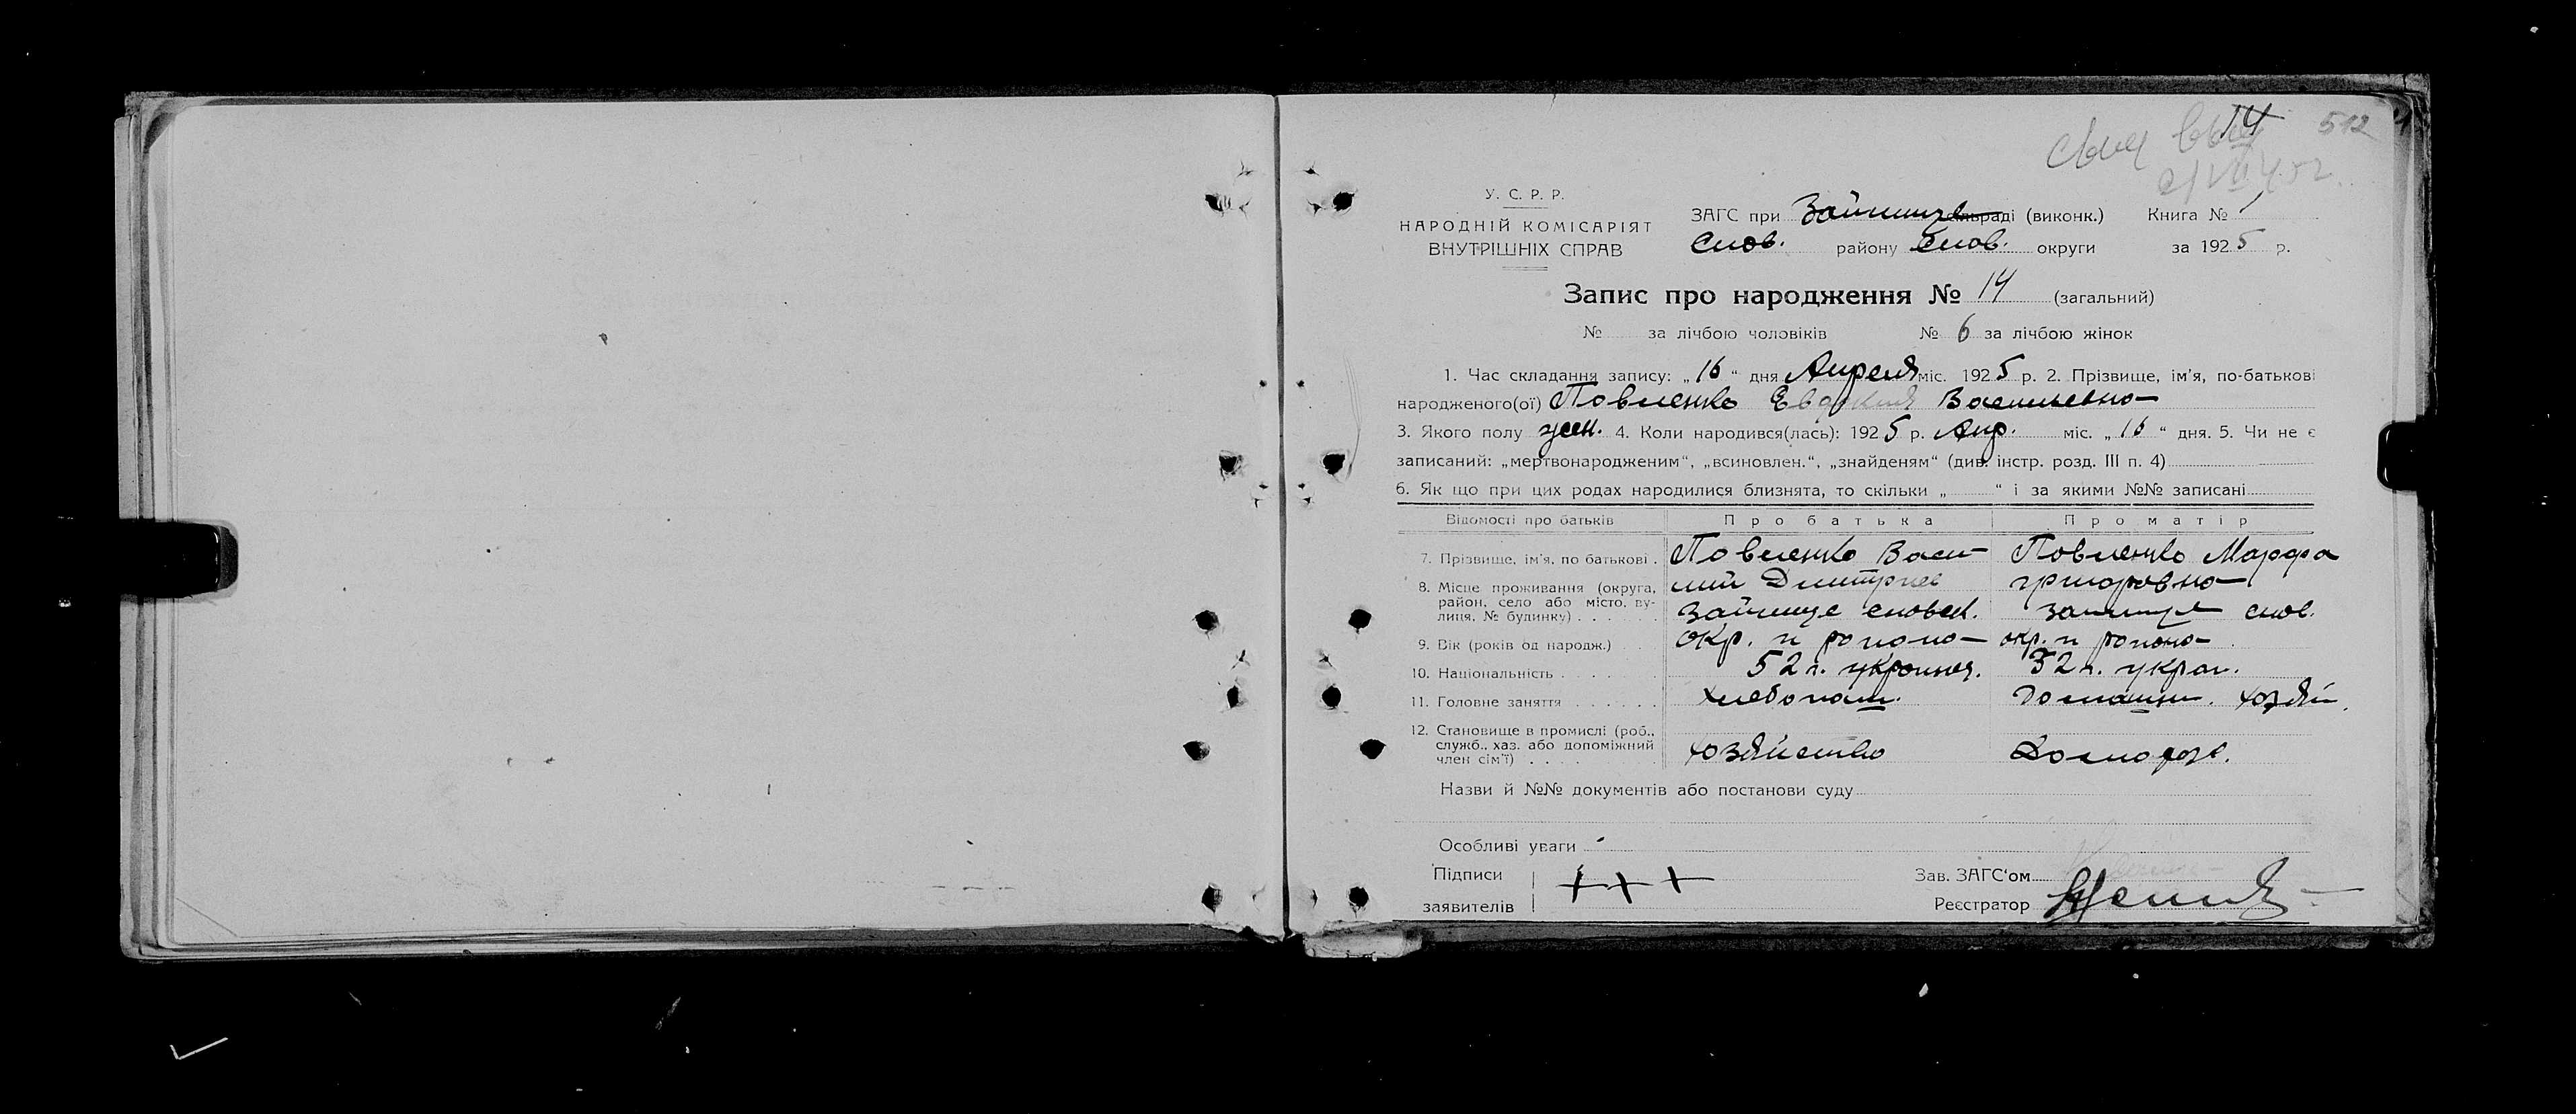 14 512
У. С. Р. Р.
НАРОДНІЙ КОМІСАРІЯТ
ВНУТРІШНІХ СПРАВ
ЗАГС при сільраді (виконк.) Книга № 1
Снов. району Снов. округи за 1925 р.
Запис про народження № 14 (загальний)
№ за лічбою чоловіків № 6 за лічбою жінок
1. Час складання запису: „16“ дня Апреля міс. 1925 р. 2. Прізвище, ім'я, по-батькові
народженого(ої) Павленко Евдокия Васильевна
3. Якого полу жен. 4. Коли народився(лась): 1925 р. Апр. міс. „16“ дня. 5. Чи не є
записаний: „мертвонародженим“, „всиновлен.“, „знайденям“ (див. інстр. розд. III п. 4)
6. Як що при цих родах народилися близнята, то скільки „ “ і за якими №№ записані
Відомості про батьків Про батька Про матір
7. Прізвище, ім'я, по батькові . Павленко Васи- Павленко Марфа
8. Місце проживання (округа, лий Дмитриев григоровна
район, село або місто, ву-
лиця, № будинку) . . . . . Займище сновск. займище снов.
9. Вік (років од народж.) . . окр. и района окр. и района
10. Національність . . . . 52 л. украинец. 32 л. украи.
11. Головне заняття . . . . . . хлебопаш. домашн. хозяй.
12. Становище в промислі (роб.,
служб., хаз. або допоміжний
член сім'ї) . . . . хозяйство
Назви й №№ документів або постанови суду
Особливі уваги -
Підписи + + + Зав. ЗАГС'ом
заявителів Реєстратор